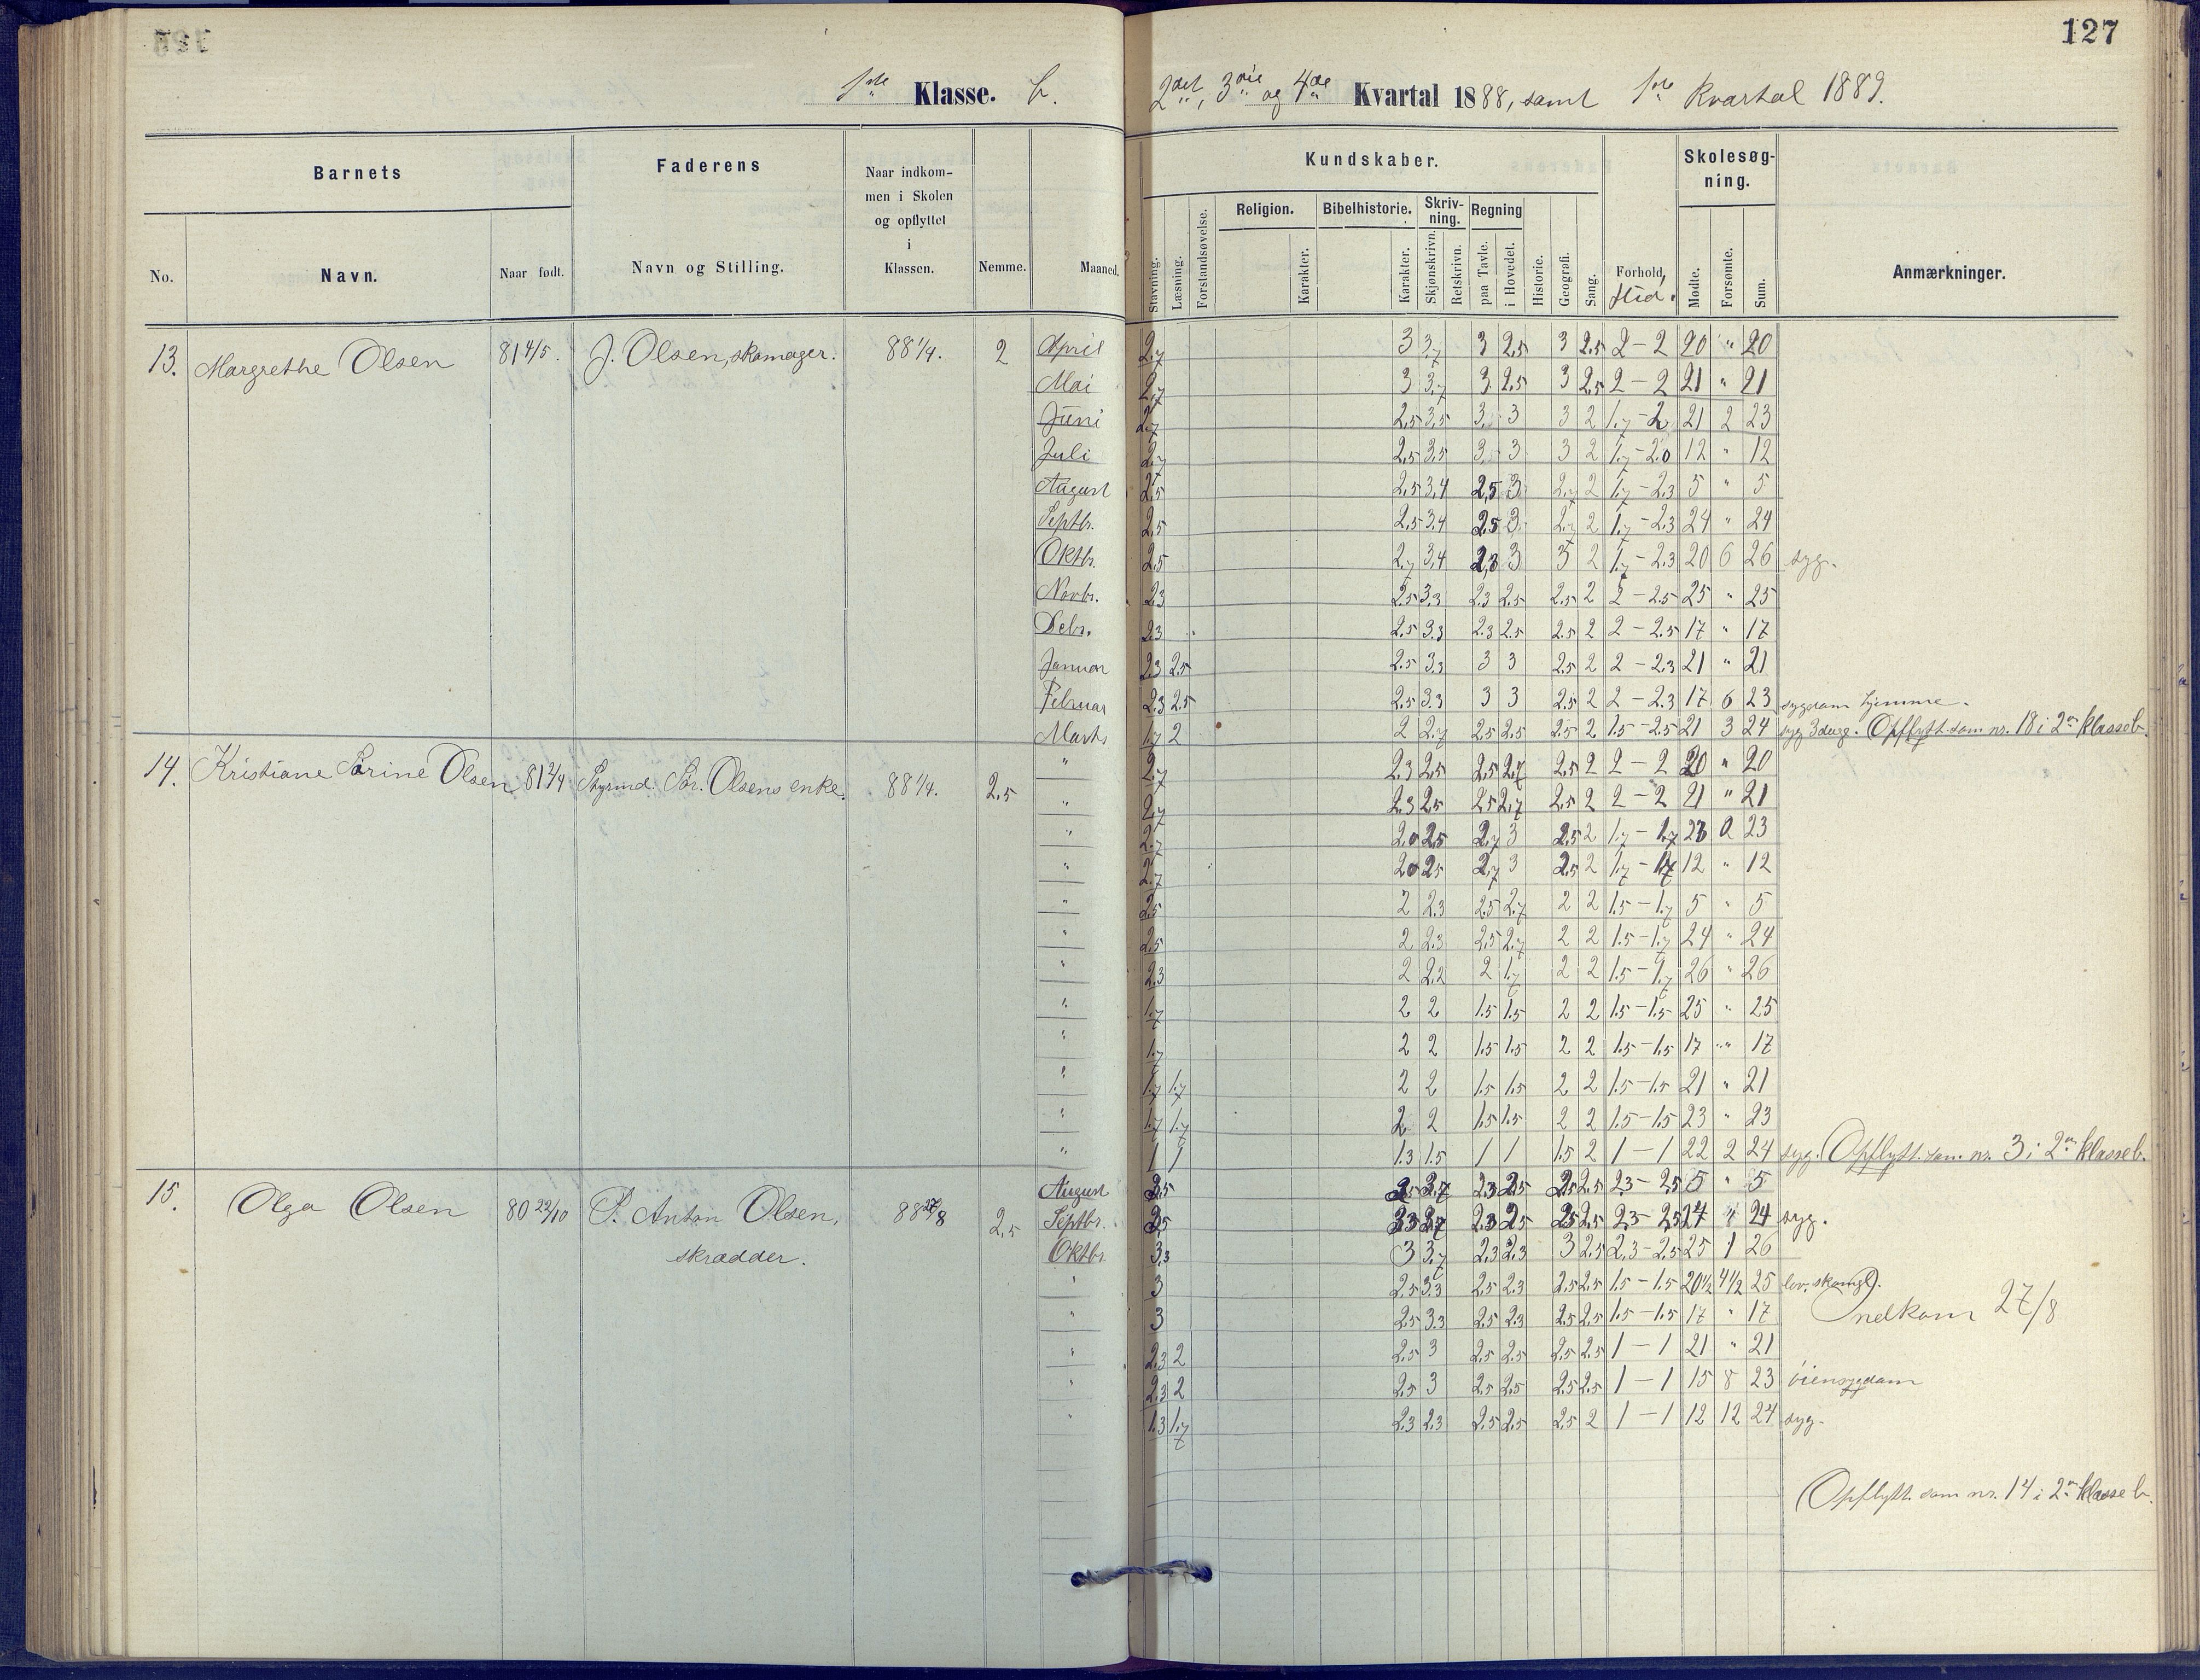 127
1ste Klasse. b.
2det, 3die og 4de Kvartal 1888, samt 1ste Kvartal 1889.
Barnets
Faderens
Naar indkommen i Skolen og opflyttet i Klassen.
Nemme.
Maaned.
Kundskaber.
Skolesøgning.
No.
Navn.
Naar født.
Navn og Stilling.
Stavning.
Læsning.
Forstandsøvelse.
Religion.
Karakter.
Bibelhistorie.
Karakter.
Skrivning.
Skjønskrivn.
Retskrivn.
Regning
paa Tavle.
i Hovedet.
Historie.
Geografi.
Sang.
Forhold, flid.
Mødte.
Forsømte.
Sum.
Anmærkninger.
13. Margrethe Olsen 81 4/5. J. Olsen, skomager. 88 1/4. 2 April 2.7 3 3.7 3 2.5 3 2.5 2 - 2 20 " 20
Mai 2.7 3 3.7 3 2.5 3 2.5 2 - 2 21 " 21
Juni 2.7 2.5 3.5 3 3 3 2 1.7 - 2 21 2 23
Juli 2.7 2.5 3.5 3 3 3 2 1.7 - 2.0 12 " 12
August 2.5 2.5 3.4 2.5 3 2.7 2 1.7 - 2.3 5 " 5
Septbr. 2.5 2.5 3.4 2.5 3 2.7 2 1.7 - 2.3 24 " 24
Oktbr. 2.5 2.7 3.4 2.3 3 3 2 1.7 - 2.3 20 6 26 syg.
Novbr. 2.3 2.5 3.3 2.3 2.5 2.5 2 2 - 2.5 25 " 25
Debr. 2.3 2.5 3.3 2.3 2.5 2.5 2 2 - 2.5 17 " 17
Januar 2.3 2.5 2.5 3.3 3 3 2.5 2 2 - 2.3 21 " 21
Februar 2.3 2.5 2.5 3.3 3 3 2.5 2 2 - 2.3 17 6 23 sygdom hjemme.
Marts 1.7 2 2 2.7 2.5 2.5 2.5 2 1.5 - 2.5 21 3 24 syg 3 dage. Opflytt. som nr. 18 i 2den klasse b.
14. Kristiane Sørine Olsen 81 2/4 Styrmd. Sør. Olsens enke. 88 1/4. 2.5 " 2.7 2.3 2.5 2.5 2.7 2.5 2 2 - 2 20 " 20
" 2.7 2.3 2.5 2.5 2.7 2.5 2 2 - 2 21 " 21
" 2.7 2.0 2.5 2.7 3 2.5 2 1.7 - 1.7 23 0 23
" 2.7 2.0 2.5 2.7 3 2.5 2 1.7 - 1.7 12 " 12
" 2.5 2 2.3 2.5 2.7 2 2 1.5 - 1.7 5 " 5
" 2.5 2 2.3 2.5 2.7 2 2 1.5 - 1.7 24 " 24
" 2.3 2 2.2 2 1.7 2 2 1.5 - 1.7 26 " 26
" 1.7 2 2 1.5 1.5 2 2 1.5 - 1.5 25 " 25
" 1.7 2 2 1.5 1.5 2 2 1.5 - 1.5 17 " 17
" 1.7 1.7 2 2 1.5 1.5 2 2 1.5 - 1.5 21 " 21
" 1.7 1.7 2 2 1.5 1.5 2 2 1.5 - 1.5 23 " 23
" 1 1 1.3 1.5 1 1 1.5 2 1 - 1 22 2 24 syg. Opflytt. som nr. 3 i 2den klasse b.
15. Olga Olsen 80 22/10 P. Anton Olsen, 88 27/8 2.5 August 3.5 3.5 3.7 2.3 2.5 2.5 2.5 2.3 - 2.5 5 " 5
Septbr. 3.5 3.3 3.7 2.3 2.5 2.5 2.5 2.3 - 2.5 24 " 24 syg.
skrædder. Oktbr. 3.3 3 3.7 2.3 2.3 3 2.5 2.3 - 2.5 25 1 26
" 3 2.5 3.3 2.5 2.3 2.5 2.5 1.5 - 1.5 20 1/2 4 1/2 25 lov. skomgl.
" 3 2.5 3.3 2.5 2.3 2.5 2.5 1.5 - 1.5 17 " 17 Indkom 27/8
" 2.3 2 2.5 3 2.5 2.5 2.5 2.5 1 - 1 21 " 21
" 2.3 2 2.5 3 2.5 2.5 2.5 2.5 1 - 1 15 8 23 øiensygdom
" 1.3 1.7 2.3 2.3 2.5 2.5 2.5 2 1 - 1 12 12 24 syg.
Opflytt. som nr. 14 i 2den klasse b.